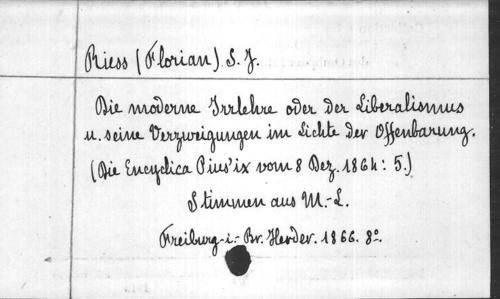 Riess (Florian) S. J.
Die moderne Irrlehre oder der Liberalismus
u. seine Verzweigungen im Lichte der Offenbarung.
(Die Encyclica Pius' ix vom 8 Dez. 1864: 5.)
Stimmen aus M.-L.
Freiburg-i.-Br. Herder. 1866. 8º.